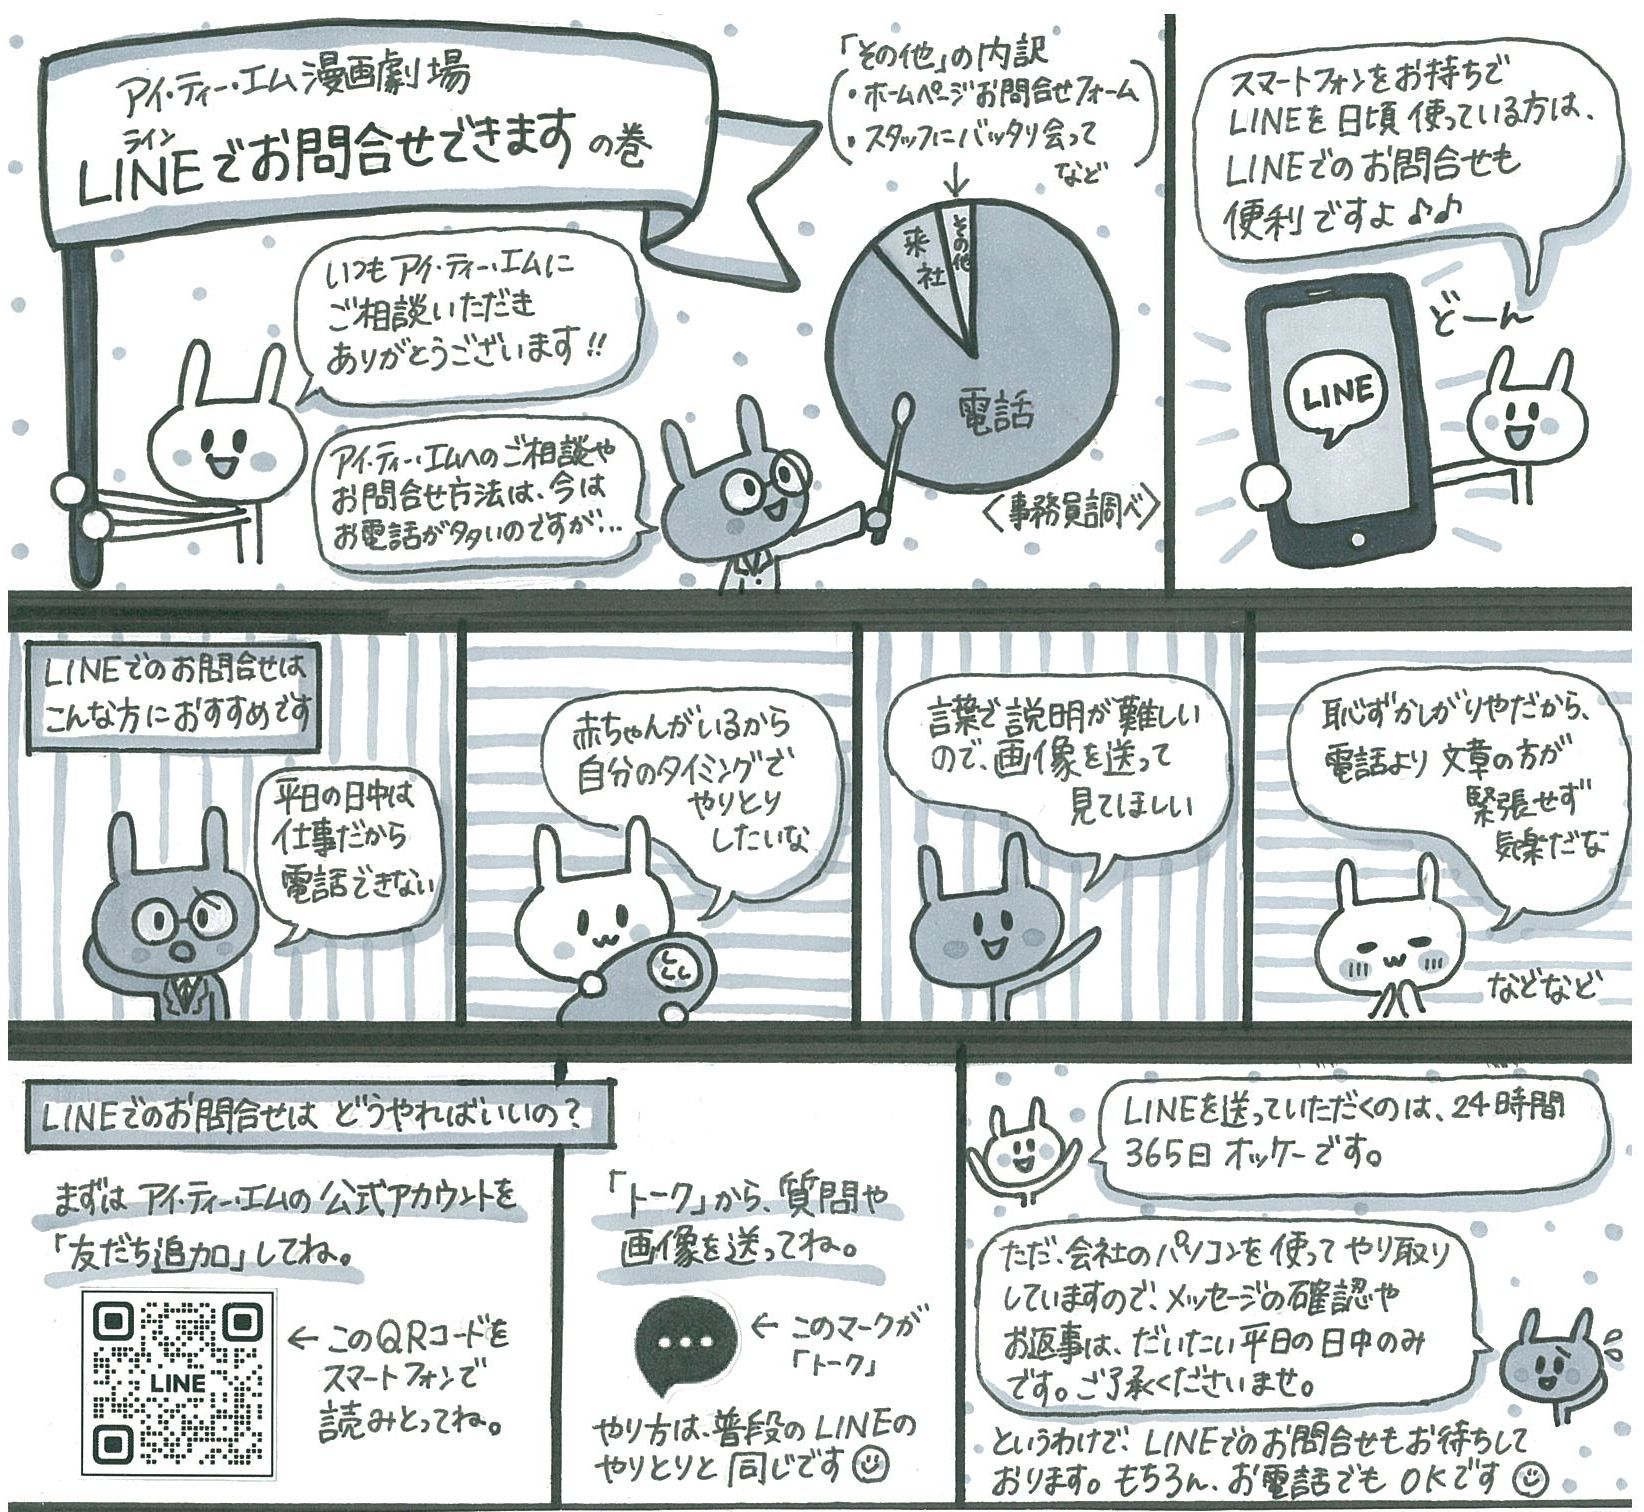 アイ・ティー・エム漫画劇場
ライン
LINEでお問合せできますの巻
いつもアイ・ティー・エムに
ご相談いただき
ありがとうございます!!
アイ・ティー・エムへのご相談や
お問合せ方法は、今は
お電話が多いのですが…
「その他」の内訳
・ホームページお問合せフォーム
・スタッフにバッタリ会って
など
その他
来社
電話
〈事務員調べ〉
スマートフォンをお持ちで
LINEを日頃使っている方は、
LINEでのお問合せも
便利ですよ♪♪
どーん
LINE
LINEでのお問合せは
こんな方におすすめです
平日の日中は
仕事だから
電話できない
赤ちゃんがいるから
自分のタイミングで
やりとり
したいな
言葉で説明が難しい
ので、画像を送って
見てほしい
恥ずかしがりやだから、
電話より文章の方が
緊張せず
気楽だな
などなど
LINEでのお問合せは どうやればいいの?
まずはアイ・ティー・エムの公式アカウントを
「友だち追加」してね。
LINE
←このQRコードを
スマートフォンで
読みとってね。
「トーク」から、質問や
画像を送ってね。
←このマークが
「トーク」
やり方は、普段のLINEの
やりとりと同じです
LINEを送っていただくのは、24時間
365日オッケーです。
ただ、会社のパソコンを使ってやり取り
していますので、メッセージの確認や
お返事は、だいたい平日の日中のみ
です。ご了承くださいませ。
というわけで、LINEでのお問合せもお待ちして
おります。もちろん、お電話でもOKです